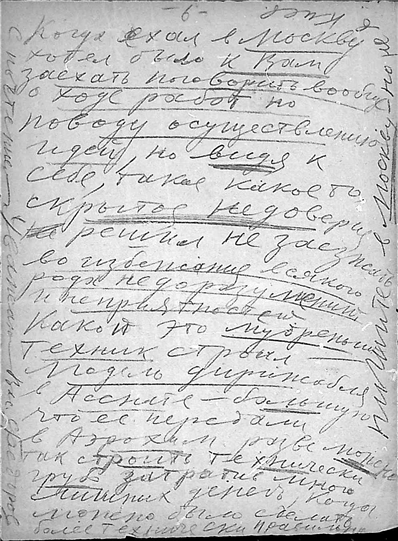 -6-
Когда ехал в Москву
хотел было к Вам
заехать поговорить вообще
о ходе работ по
поводу осуществлению
идей, но видя к
себе, такое какое то
скрытое недоверия
не решил не заезжать
во избежание всякого
рода недоразумений
и неприятностей
Какой это мудреный
техник строил
модель дирижабля
в Ассните – большую
что ее передали
в Аэрохим разве можно
так строить технически
грубо затратив много
лишних денег, когда
можно было сделать
более технически
пишите в Москву
С почтением